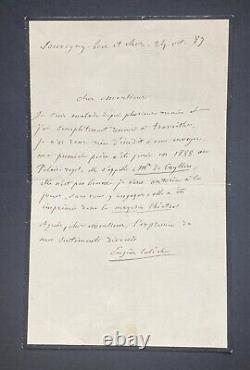 Souvigny Loir et Cher. 24 oct. 87
cher Monsieur
Je suis malade depuis plusieurs mois et
j'ai complètement renoncé à travailler.
Je n'ai donc rien d'inédit à vous envoyer.
ma première pièce a été jouée en 1838 au
Palais royal. elle s'appelle Mr de Coyllin
elle n'est pas bonne. je vous autorise à la
jouer, sans vous y engager. elle a été
imprimée dans le magasin théâtral
Agréez, cher monsieur, l'expression de
mes sentiments dévoués
Eugène Labiche
ebth.be